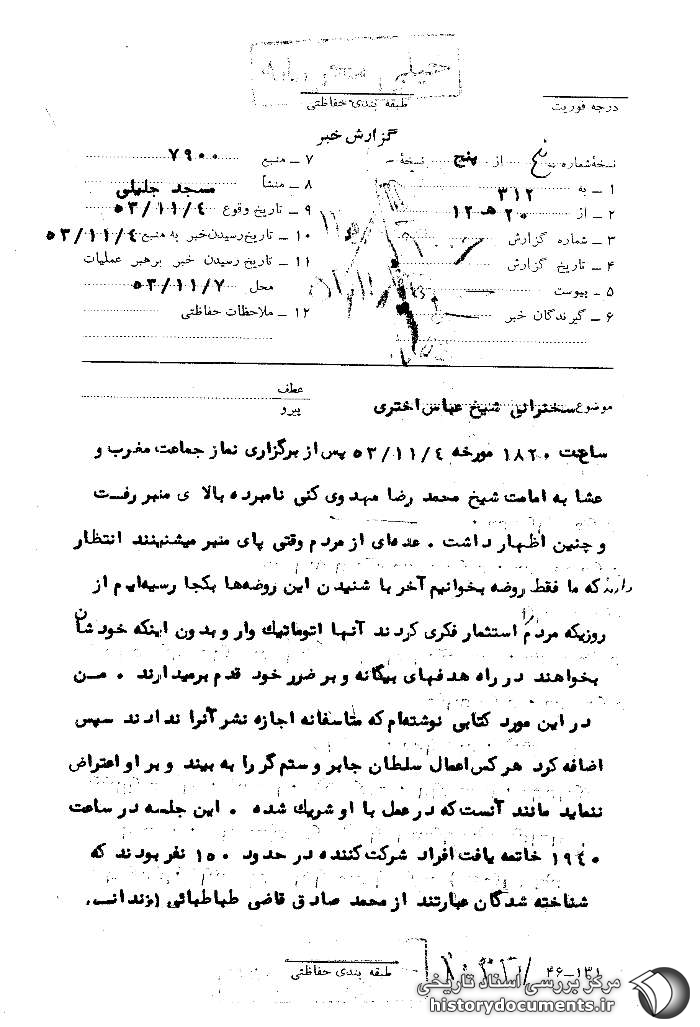 خیلی محرمانه
درجه فوریت
طبقه بندی حفاظتی
گزارش خبر
نسخهٔ شماره پنج از پنج نسخهٔ
۱ ــ به ۳۱۲
۲ ــ از ۲۰ هـ ۱۲
۳ ــ شماره گزارش
۴ ــ تاریخ گزارش
۵ ــ پیوست
۶ ــ گیرندگان خبر
۷ ــ منبع ۷۹۰۰
۸ ــ منشأ مسجد جلیلی
۹ ــ تاریخ وقوع ۵۳/۱۱/۴
۱۰ ــ تاریخ رسیدن خبر به منبع ۵۳/۱۱/۴
۱۱ ــ تاریخ رسیدن خبر برهبر عملیات
محل ۵۳/۱۱/۷
۱۲ ــ ملاحظات حفاظتی
موضوع سخنرانی شیخ عباس اختری
عطف
پیرو
ساعت ۱۸۲۰ مورخه ۵۳/۱۱/۴ پس از برگزاری نماز جماعت مغرب و
عشا به امامت شیخ محمد رضا مهدوی کنی نامبرده بالا ی منبر رفت
و چنین اظهار داشت . عده‌ای از مردم وقتی پای منبر میشنینند انتظار
دارند که ما فقط روضه بخوانیم آخر با شنیدن این روضه‌ها بکجا رسیه‌ایم از
روزیکه مردم را استثمار فکری کردند آنها اتوماتیك وار و بدون اینکه خودشان
بخواهند در راه هدفهای بیگانه و بر ضرر خود قدم برمیدارند . من
در این مورد کتابی نوشته‌ام که متاسفانه اجازه نشر آنرا ندادند سپس
اضافه کرد هر کس اعمال سلطان جابر و ستم گر را به بیند و بر او اعتراض
ننماید مانند آنست که در عمل با او شریك شده . این جلسه در ساعت
۱۹۴۰ خاتمه یافت افراد شرکت کننده در حدود ۱۵۰ نفر بودند که
شناخته شدگان عبارتند از محمد صادق قاضی طباطبائی
طبقه بندی حفاظتی
۴۶-۱۳۱
مرکز بررسی اسناد تاریخی
historydocuments.ir